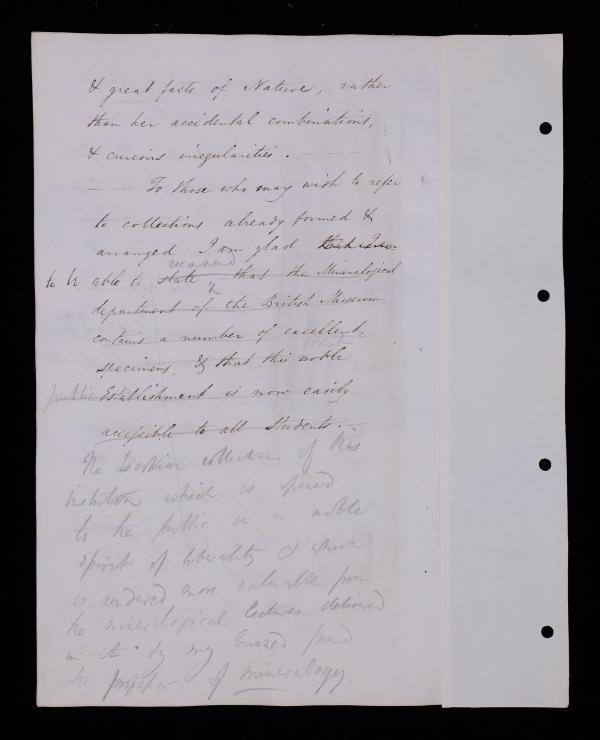 & great facts of Nature, rather
than her accidental combinations,
& curious irregularities. —
— To those who may wish to refer
to collections already formed &
arranged I am glad that I am
reasoned
to be able to state that the Mineralogical
department of the British Museum,
contains a number of excellent
specimens, & that this noble
public Establishment is now easily
accessible to all Students. —
The collection of this
institution which is opened
to the public in a noble
spirit of liberality & which
is rendered more valuable from
the mineralogical lectures delivered
in it by my learned friend
the professor of mineralogy.